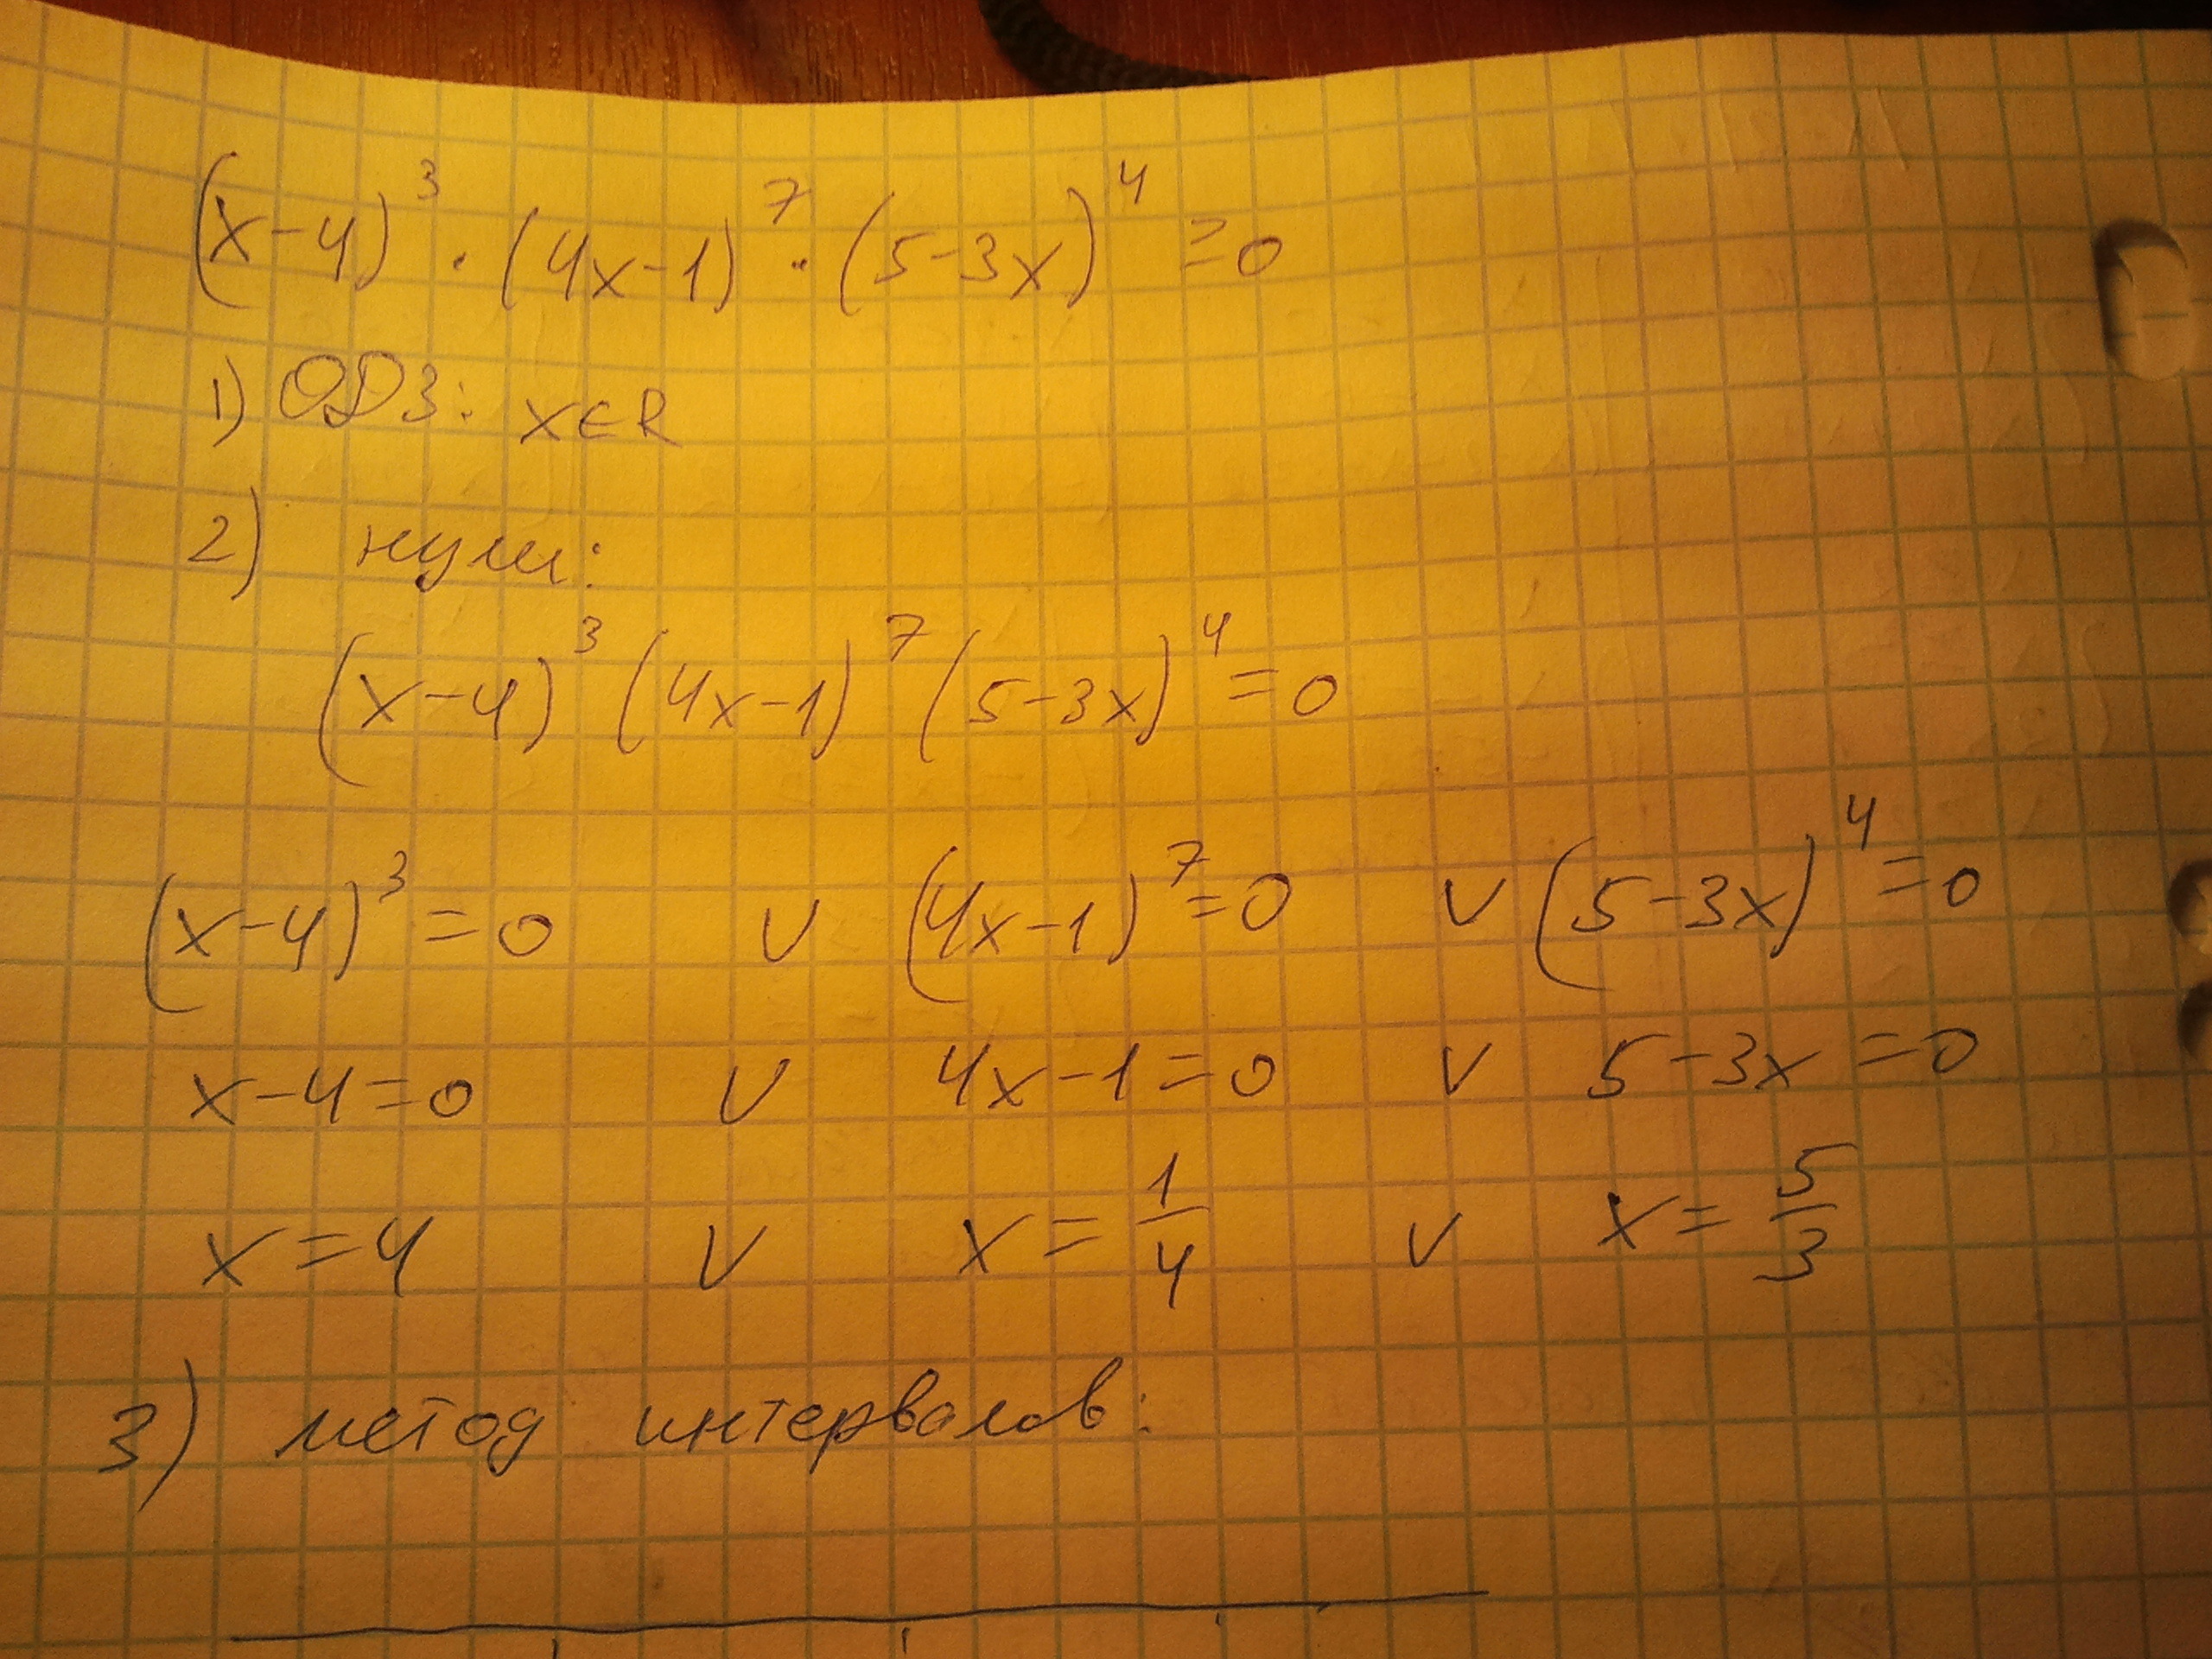 (x-4)³ · (4x-1)⁷ · (5-3x)⁴ ≥ 0
1) ОДЗ: x∈R
2) нули:
(x-4)³ (4x-1)⁷ (5-3x)⁴ = 0
(x-4)³ = 0 ∨ (4x-1)⁷ = 0 ∨ (5-3x)⁴ = 0
x-4=0 ∨ 4x-1=0 ∨ 5-3x=0
x=4 ∨ x=1/4 ∨ x=5/3
3) метод интервалов: